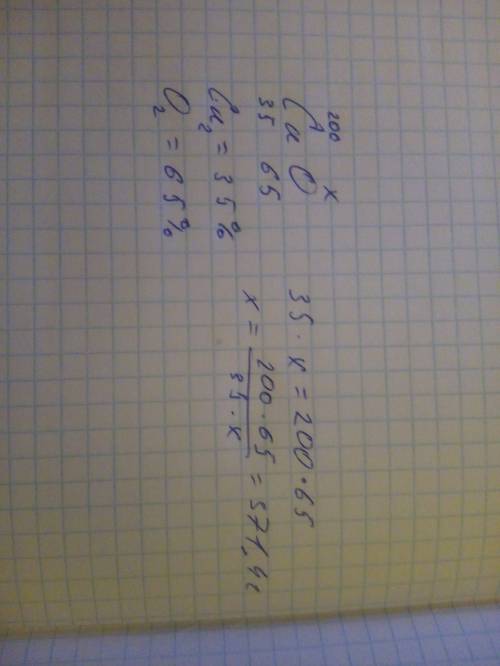 200 x
Ca O
35 65
Ca₂ = 35%
O₂ = 65%
35 · x = 200 · 65
x = 200 · 65 / 35 · x = 371,4г